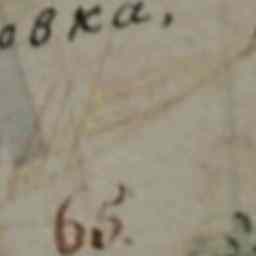 овка,
65.